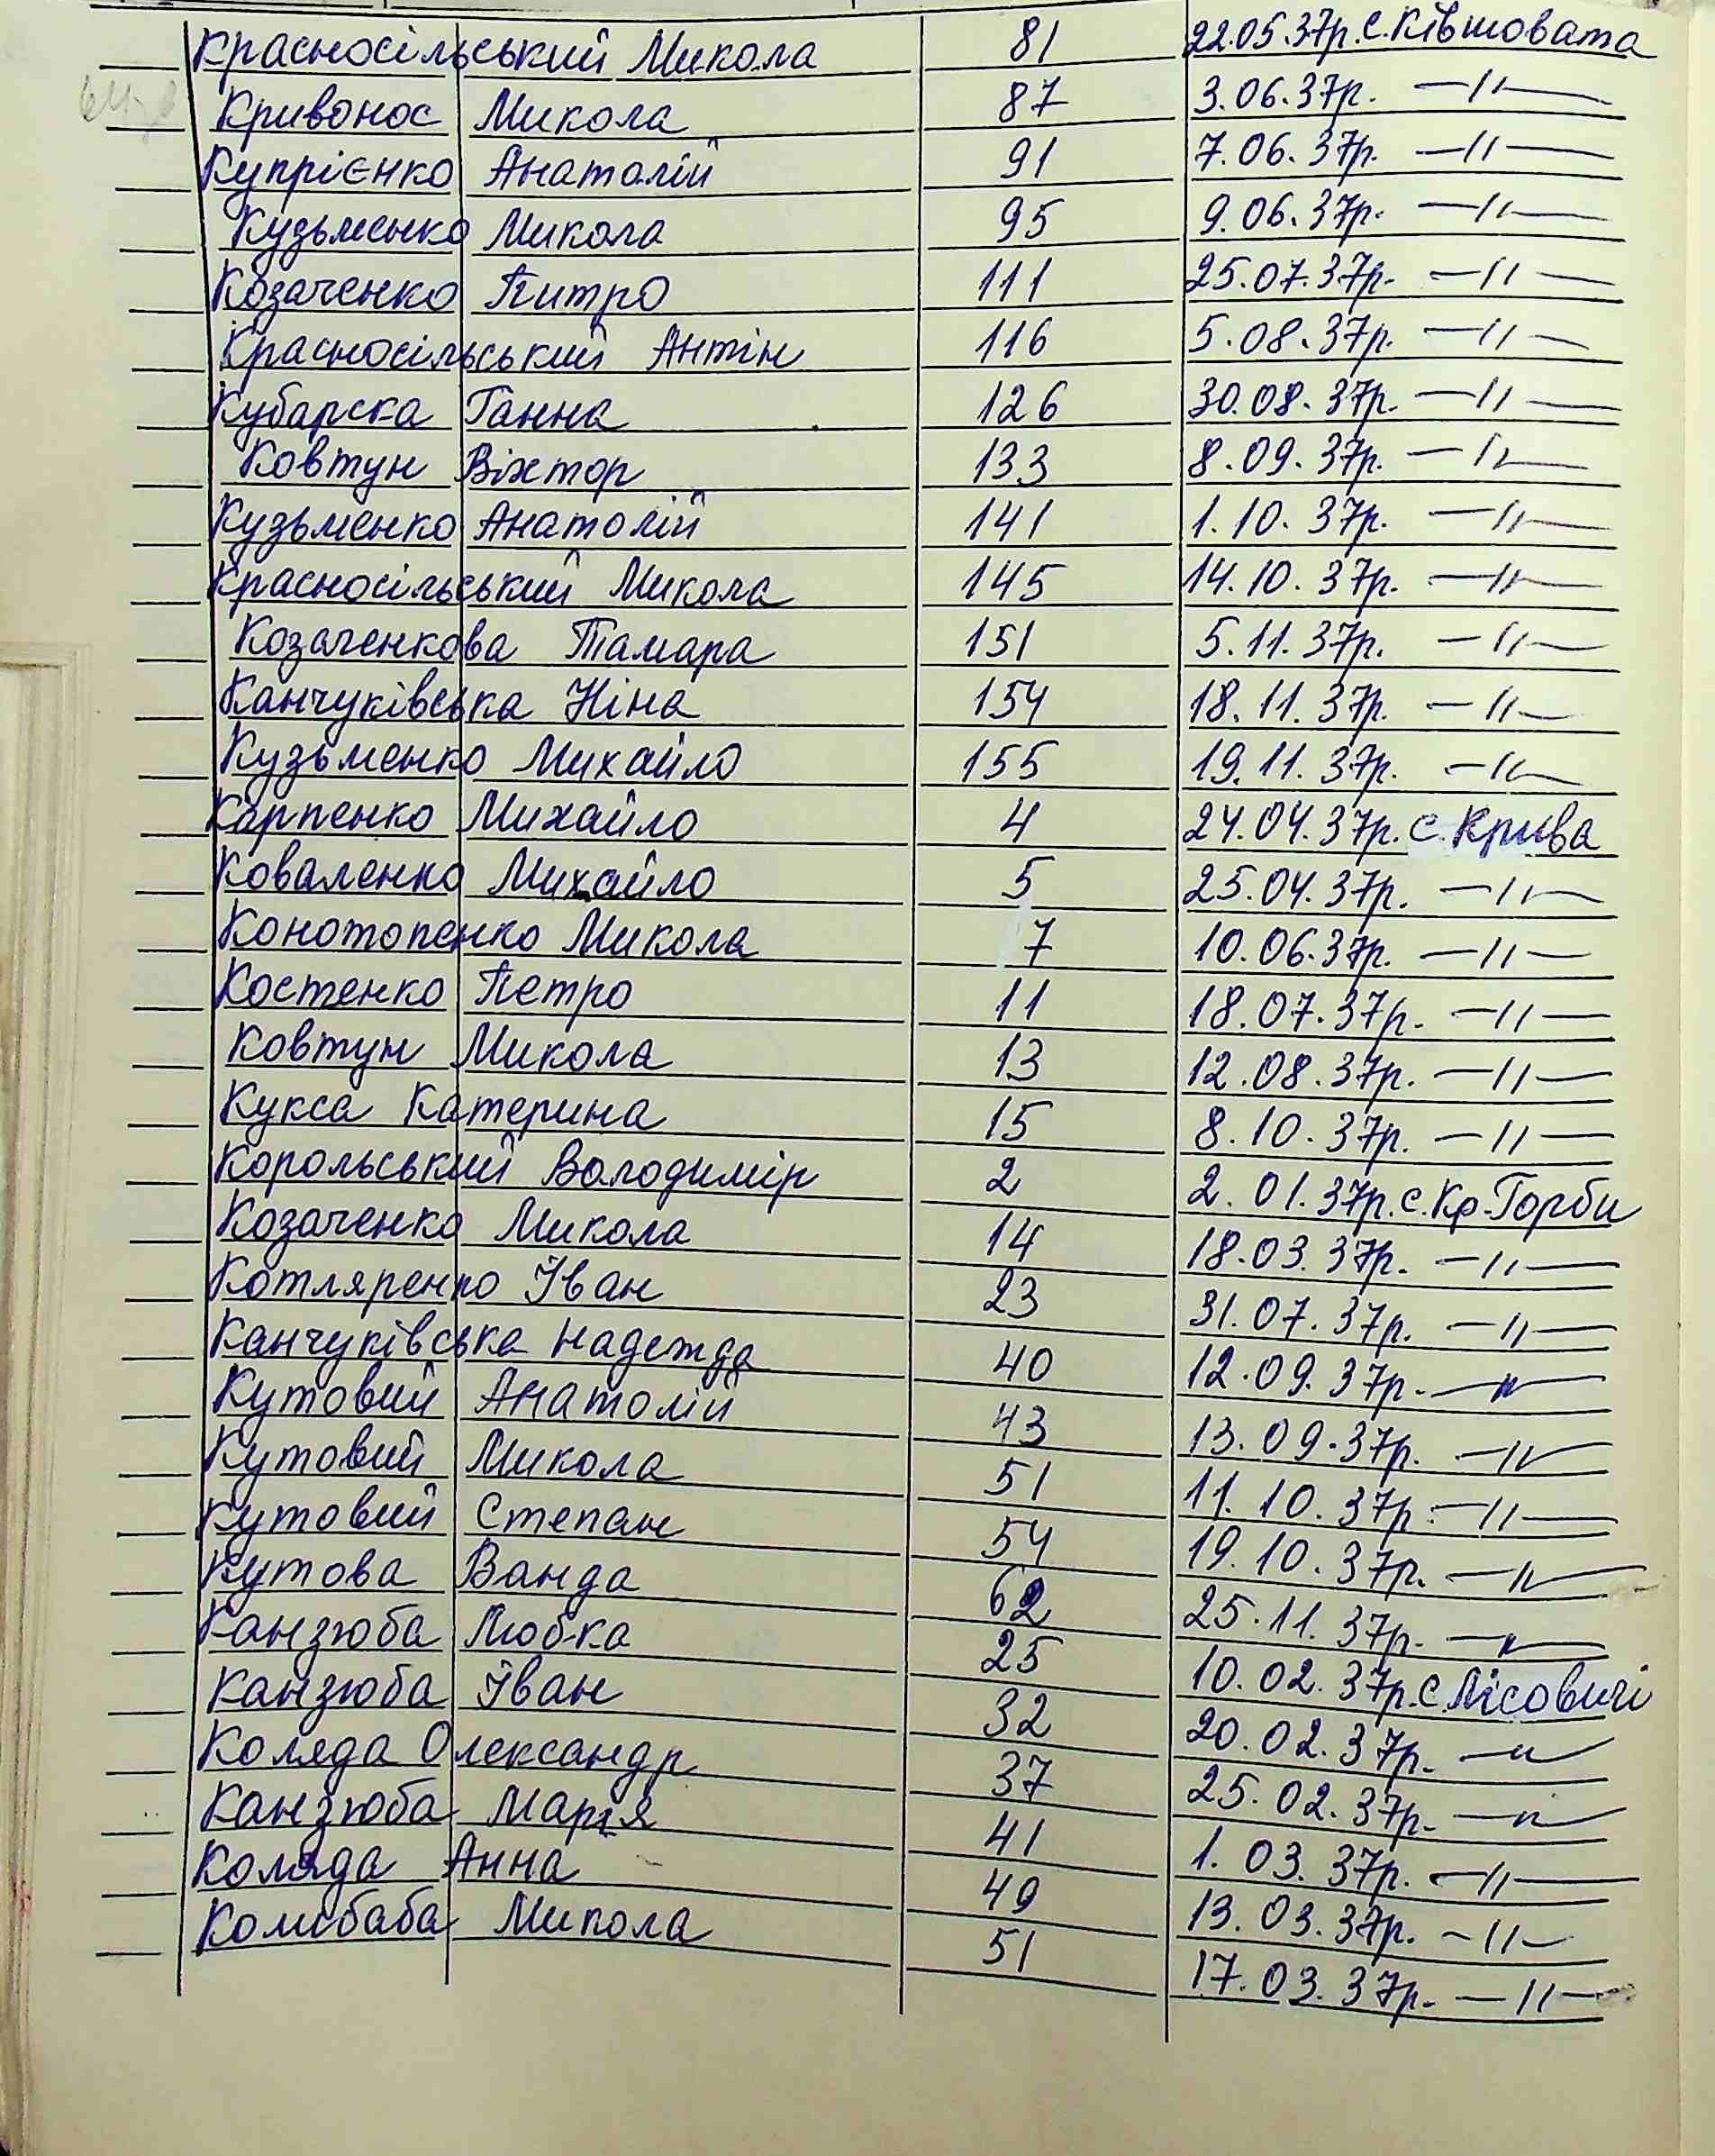 Красносільський Микола 81 22.05.37р. с. Ківшовата
Кривонос Микола 87 3.06.37р. —11—
Купрієнко Анатолій 91 7.06.37р. —11—
Кузьменко Микола 95 9.06.37р. —11—
Козаченко Питро 111 25.07.37р. —11—
Красносільський Антін 116 5.08.37р. —11—
Кубарска Ганна 126 30.08.37р. —11—
Ковтун Віктор 133 8.09.37р. —11—
Кузьменко Анатолій 141 1.10.37р. —11—
Красносільський Микола 145 14.10.37р. —11—
Козаченкова Тамара 151 5.11.37р. —11—
Канчуківська Ніна 154 18.11.37р. —11—
Кузьменко Михайло 155 19.11.37р. —11—
Карпенко Михайло 4 24.04.37р. с. Крива
Коваленко Михайло 5 25.04.37р. —11—
Конотопенко Микола 7 10.06.37р. —11—
Костенко Петро 11 18.07.37р. —11—
Ковтун Микола 13 12.08.37р. —11—
Кукса Катерина 15 8.10.37р. —11—
Корольський Володимір 2 2.01.37р. с. Кр. Горби
Козаченко Микола 14 18.03.37р. —11—
Котляренко Іван 23 31.07.37р. —11—
Канчуківська Надежда 40 12.09.37р. —11—
Кутовий Анатолій 43 13.09.37р. —11—
Кутовий Микола 51 11.10.37р. —11—
Кутовий Степан 54 19.10.37р. —11—
Кутова Ванда 62 25.11.37р. —11—
Канзюба Любка 25 10.02.37р. с Лісовичі
Канзюба Іван 32 20.02.37р. —11—
Коляда Олександр 37 25.02.37р. —11—
Канзюба Марія 41 1.03.37р. —11—
Коляда Анна 49 13.03.37р. —11—
Колибаба Микола 51 17.03.37р. —11—